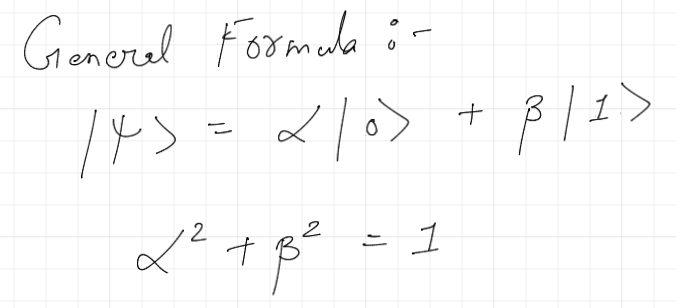 General Formula :-
|ψ> = α|0> + β|1>
α² + β² = 1